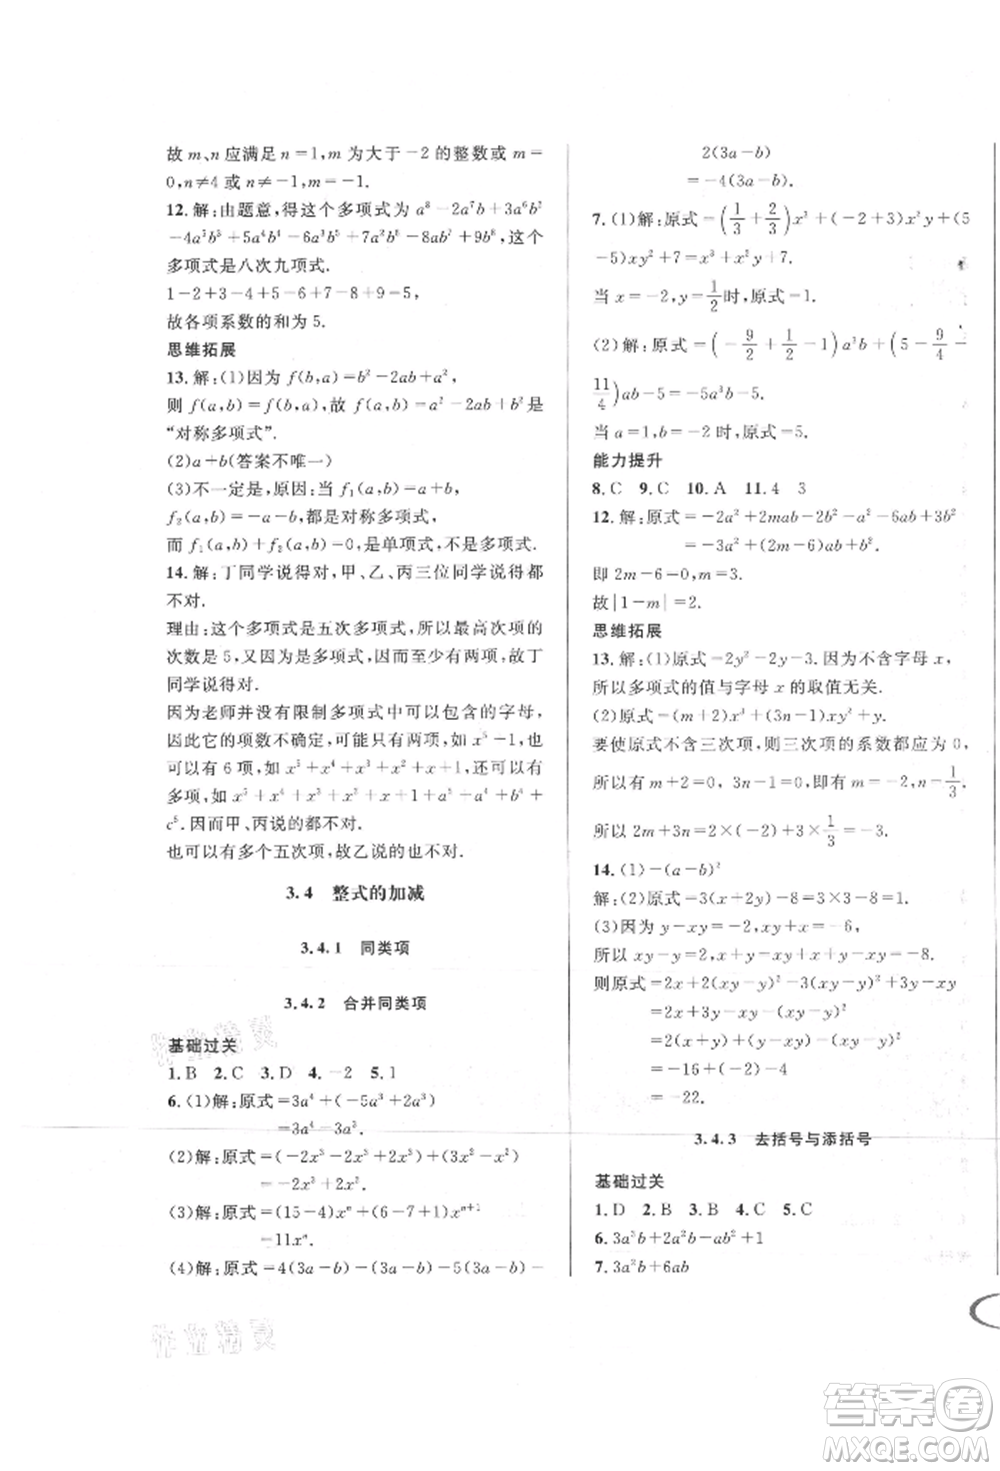 故 m、n 应满足 n=1,m 为大于-2 的整数或 m=
0,n≠4 或 n≠-1,m=-1.
12. 解:由题意,得这个多项式为 a⁸-2a⁷b+3a⁶b²
-4a⁵b³+5a⁴b⁴-6a³b⁵+7a²b⁶-8ab⁷+9b⁸,这个
多项式是八次九项式.
1-2+3-4+5-6+7-8+9=5,
故各项系数的和为 5.
思维拓展
13. 解:(1)因为 f(b,a)=b²-2ab+a²,
则 f(a,b)=f(b,a),故 f(a,b)=a²-2ab+b² 是
“对称多项式”.
(2)a+b(答案不唯一)
(3)不一定是,原因:当 f₁(a,b)=a+b,
f₂(a,b)=-a-b,都是对称多项式,
而 f₁(a,b)+f₂(a,b)=0,是单项式,不是多项式.
14. 解:丁同学说得对,甲、乙、丙三位同学说得都
不对.
理由:这个多项式是五次多项式,所以最高次项的
次数是 5,只要是多项式,必须含有两项,所以丁
同学说得对.
因为老师并没有限制多项式中可以包含的字母,
因此它的项数不确定,可能只有两项,如 x⁵-1,也
可以有 6 项,如 x⁵+x⁴+x³+x²+x+1,还可以有
多项,如 x⁵+x⁴+x³+x²+x+a+a²+a⁴+a⁵+b+
c⁵. 因而甲、丙说的都不对.
也可以有多个五次项,故乙说的也不对.
3.4 整式的加减
3.4.1 同类项
3.4.2 合并同类项
基础过关
1. B 2. C 3. D 4. -2 5. 1
6. (1)解:原式=3a⁴+(-5a³+2a³)
=3a⁴-3a³.
(2)解:原式=(-2x³-5x³+5x³)+(2x²-x²)
=-2x³+x².
(3)解:原式=(15-4)xⁿ+(4-4)xⁿ⁺¹
=11xⁿ.
(4)解:原式=4(3a-b)-5(3a-b)-5(3a-b)+
2(3a-b)
=-4(3a-b).
7. (1)解:原式=(1/3+2/3)x³+(-2+3)x²y+(5
-5)xy²+7=x³+x²y+7.
当 x=-2,y=1/2时,原式=1.
(2)解:原式=(-9/2+1/2-1)a³b+(5-9/4-
11/4)ab-5=-5a³b-5.
当 a=1,b=-2 时,原式=5.
能力提升
8. C 9. C 10. A 11. 4 3
12. 解:原式=-2a²+2mab-2b²-a²-6ab+3b²
=-3a²+(2m-6)ab+b²,
即 2m-6=0,m=3.
故|1-m|=2.
思维拓展
13. 解:(1)原式=2y²-2y-3. 因为不含字母 x,
所以多项式的值与字母 x 的取值无关.
(2)原式=(m+2)x³+(3n-1)xy²+y.
要使原式不含三次项,则三次项的系数都应为 0,
所以有 m+2=0,3n-1=0,即有 m=-2,n=1/3.
所以 2m+3n=2×(-2)+3×1/3=-3.
14. (1)-(a-b)²
解:(2)原式=3(x+2y)-8=3×3-8=1.
(3)因为 y-xy=2,xy+x=-6,
所以 xy-y=-2,x+xy=-6,
则原式=2x+2(xy-y)²-3(xy-y)²+3y-xy
=2x+3y-xy-(xy-y)²
=2(x+y)+(y-xy)-(xy-y)²
=-16+(-2)-4
=-22.
3.4.3 去括号与添括号
基础过关
1. D 2. B 3. B 4. C 5. C
6. 3a³b+2a²b-ab²+1
7. 3a²b+6ab
作业精灵
作业精灵
答案圈
MXQE.COM